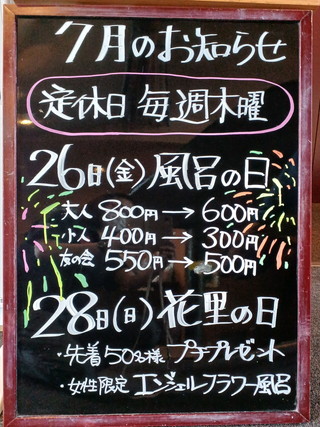 7月のお知らせ
定休日 毎週木曜
26日(金)風呂の日
大人 800円→600円
小人 400円→300円
友の会 550円→500円
28日(日)花里の日
・先着50名様 プチプレゼント
・女性限定 エンジェルフラワー風呂